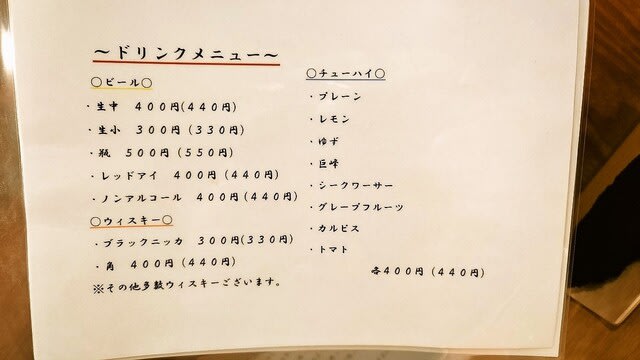 ～ドリンクメニュー～
○ビール○
・生中　４００円(４４０円)
・生小　３００円（３３０円）
・瓶　５００円（５５０円）
・レッドアイ　４００円（４４０円）
・ノンアルコール　４００円（４４０円）
○ウィスキー○
・ブラックニッカ　３００円(３３０円)
・角　４００円（４４０円）
※その他多数ウィスキーございます。
○チューハイ○
・プレーン
・レモン
・ゆず
・巨峰
・シークワーサー
・グレープフルーツ
・カルピス
・トマト
各４００円（４４０円）